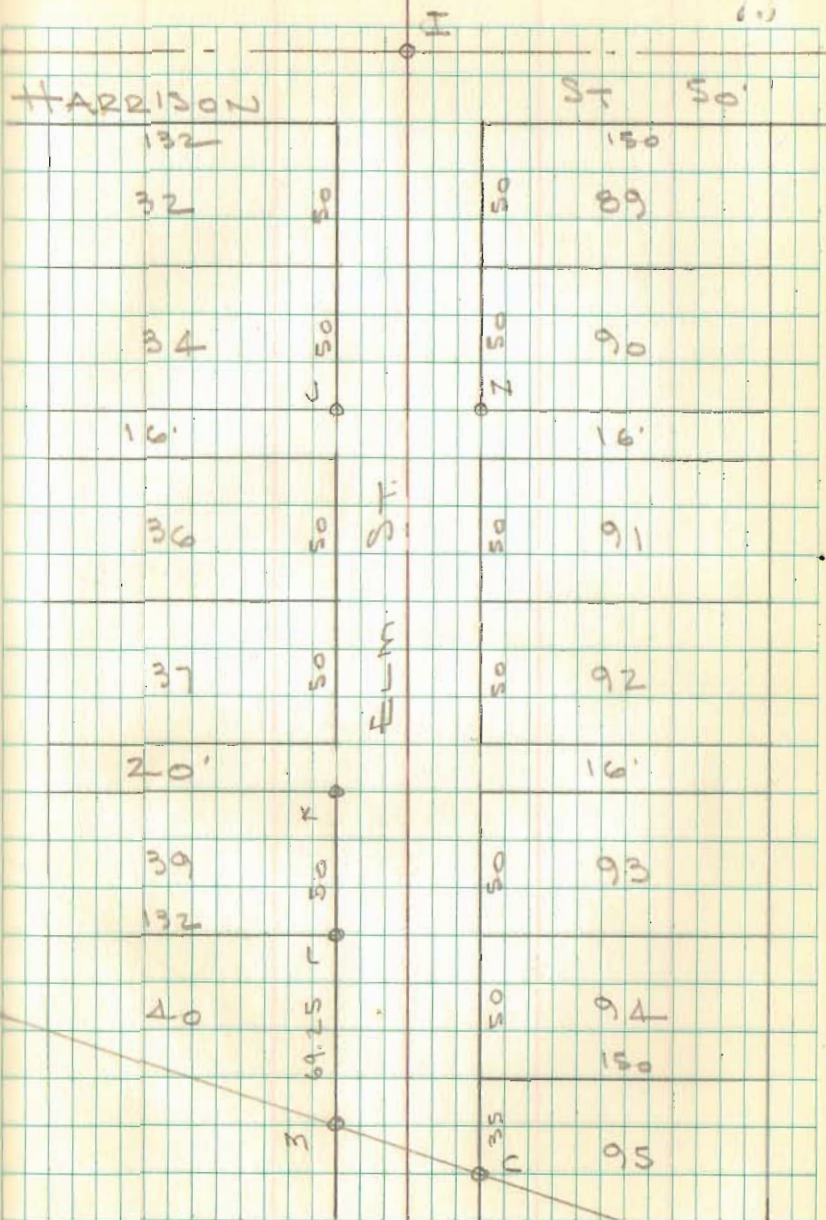 H
HARRISON ST 50'
132 150
32 50 50 89
34 50 50 90
C Z
16' 16'
36 50 50 91
ELM ST.
37 50 50 92
20' 16'
K
39 50 50 93
132
L
40 69.25 50 94
150
M 35 95
C